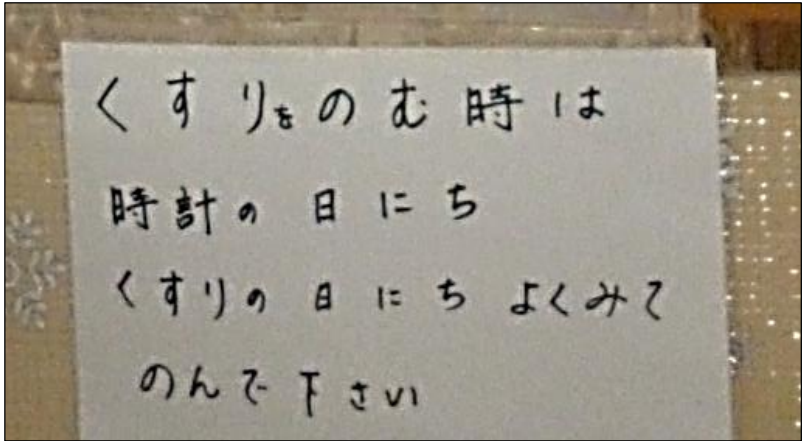 くすりをのむ時は
時計の日にち
くすりの日にちよくみて
のんで下さい